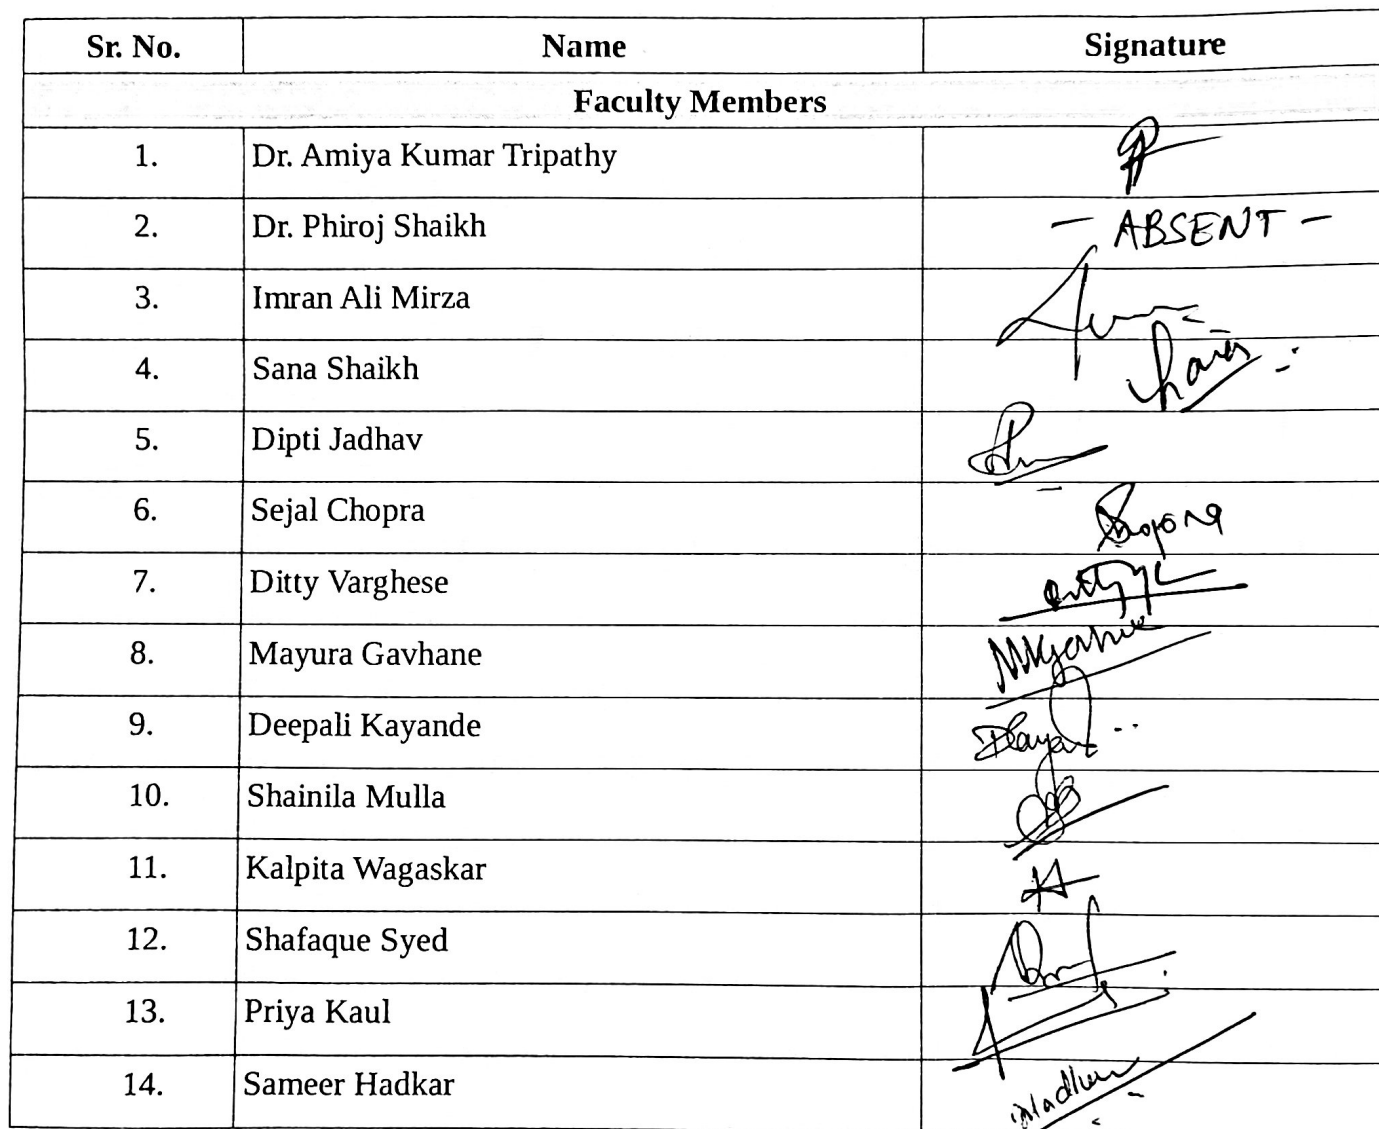 Sr. No. Name Signature
Faculty Members
1. Dr. Amiya Kumar Tripathy
2. Dr. Phiroj Shaikh - ABSENT -
3. Imran Ali Mirza
4. Sana Shaikh
5. Dipti Jadhav
6. Sejal Chopra
7. Ditty Varghese
8. Mayura Gavhane
9. Deepali Kayande
10. Shainila Mulla
11. Kalpita Wagaskar
12. Shafaque Syed
13. Priya Kaul
14. Sameer Hadkar